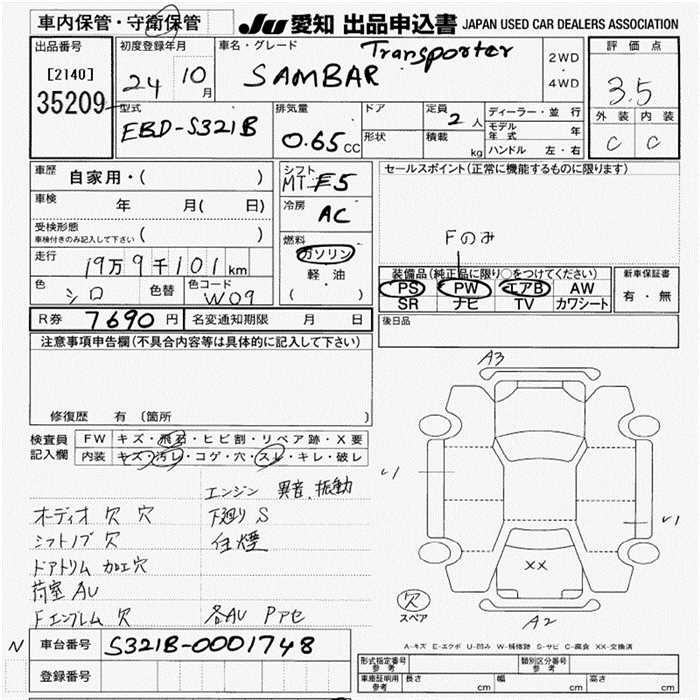 車内保管・守衛保管
JU 愛知 出品申込書 JAPAN USED CAR DEALERS ASSOCIATION
出品番号
[2140]
35209
初度登録年月
24 10月
車名・グレード
SAMBAR Transporter
2WD
・
4WD
評価点
3.5
外装 内装
C C
型式
EBD-S321B
排気量
0.65cc
ドア
形状
定員 2人
積載 kg
ディーラー・並行
モデル年式 年
ハンドル 左・右
車歴
自家用・( )
車検 年 月( 日)
受検形態
車検付きのみ記入して下さい ( )
走行
19万9千101km
色 シロ 色替
色コード W09
シフト
MT F5
冷房
AC
燃料
ガソリン
軽・油
( )
セールスポイント(正常に機能するものに限ります)
Fのみ
装備品(純正品に限り○をつけてください)
PS PW エアB AW
SR ナビ TV カワシート
新車保証書
有・無
R券 7690円 名変通知期限 月 日
後日品
注意事項申告欄(不具合内容等は具体的に記入して下さい)
修復歴 有 (箇所 )
検査員記入欄
FW キズ・飛石・ヒビ割・リペア跡・X要
内装 キズ・汚レ・コゲ・穴・スレ・キレ・破レ
エンジン 異音、振動
オーディオ欠 穴 下廻りS
シフトノブ欠 白煙
ドアトリム 加工穴
荷室 AU
Fエンブレム 欠 各AU Pアセ
A3
U1
U1
XX
A2
欠
スペア
A-キズ E-エクボ U-凹み W-補修跡 S-サビ C-腐食 XX-交換済
N 車台番号 S321B-0001748
登録番号
形式指定番号 参考
類別区分番号 参考
車庫証明用 参考 長さ cm 幅 cm 高さ cm